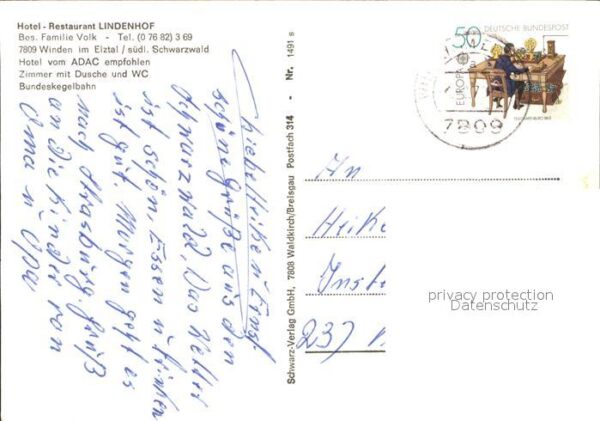 Hotel - Restaurant LINDENHOF
Bes. Familie Volk - Tel. (0 76 82) 3 69
7809 Winden im Elztal / südl. Schwarzwald
Hotel vom ADAC empfohlen
Zimmer mit Dusche und WC
Bundeskegelbahn
Liebe Heike u. Ernst.
schöne Grüße aus den
Schwarzwald. Das Wetter
ist schön, Essen u. trinken
ist gut. Morgen geht es
nach Strasburg. Gruß
an die Kinder von
Oma u. Opa
Schwarz-Verlag GmbH, 7808 Waldkirch/Breisgau Postfach 314 - Nr. 1491 s
50 DEUTSCHE BUNDESPOST
EUROPA
7809
An
Heike
237
privacy protection
Datenschutz